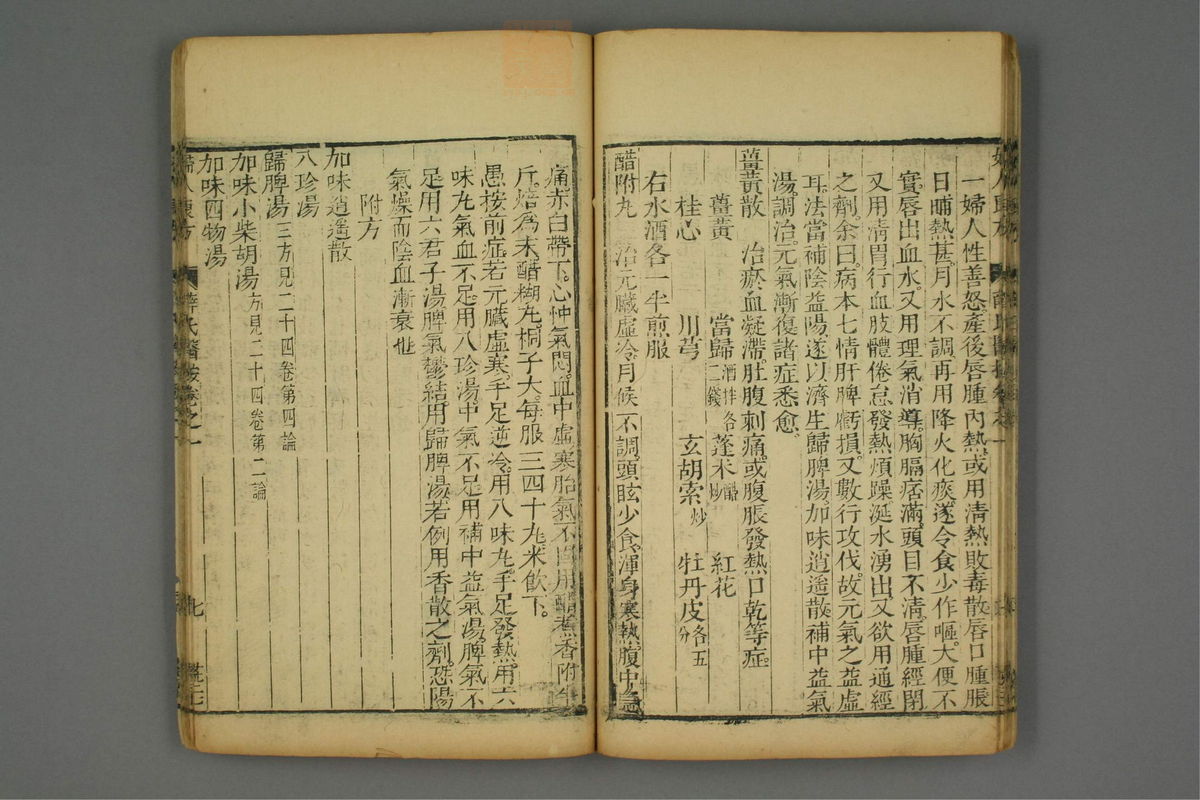 一婦人性善怒產後唇腫內熱或用清熱敗毒散唇口腫脹
日晡熱甚月水不調再用降火化痰遂令食少作嘔大便不
實唇出血水又用理氣消導胸膈痞滿頭目不清唇腫經閉
又用清胃行血肢體倦怠發熱煩躁涎水湧出又欲用通經
之劑余曰病本七情肝脾虧損又數行攻伐故元氣之益虛
耳法當補陰益陽遂以濟生歸脾湯加味逍遙散補中益氣
湯調治元氣漸復諸症悉愈
薑黃散 治瘀血凝滯肚腹刺痛或腹脹發熱口乾等症
薑黃 當歸酒拌各二錢 蓬朮醋炒 紅花
桂心 川芎 玄胡索炒 牡丹皮各五分
右水酒各一半煎服
醋附丸 治元臟虛冷月候不調頭眩少食渾身寒熱腹中急
痛赤白帶下心忡氣悶血中虛寒胎氣不固用醋煮香附
斤焙為末醋糊丸桐子大每服三四十丸米飲下
愚按前症若元臟虛寒手足逆冷用八味丸手足發熱用六
味丸氣血不足用八珍湯中氣不足用補中益氣湯脾氣不
足用六君子湯脾氣鬱結用歸脾湯若例用香散之劑恐陽
氣燥而陰血漸衰也
附方
加味逍遙散
八珍湯
歸脾湯三方見二十四卷第四論
加味小柴胡湯方見二十四卷第二論
加味四物湯
婦人良方 薛氏醫按卷之一 七